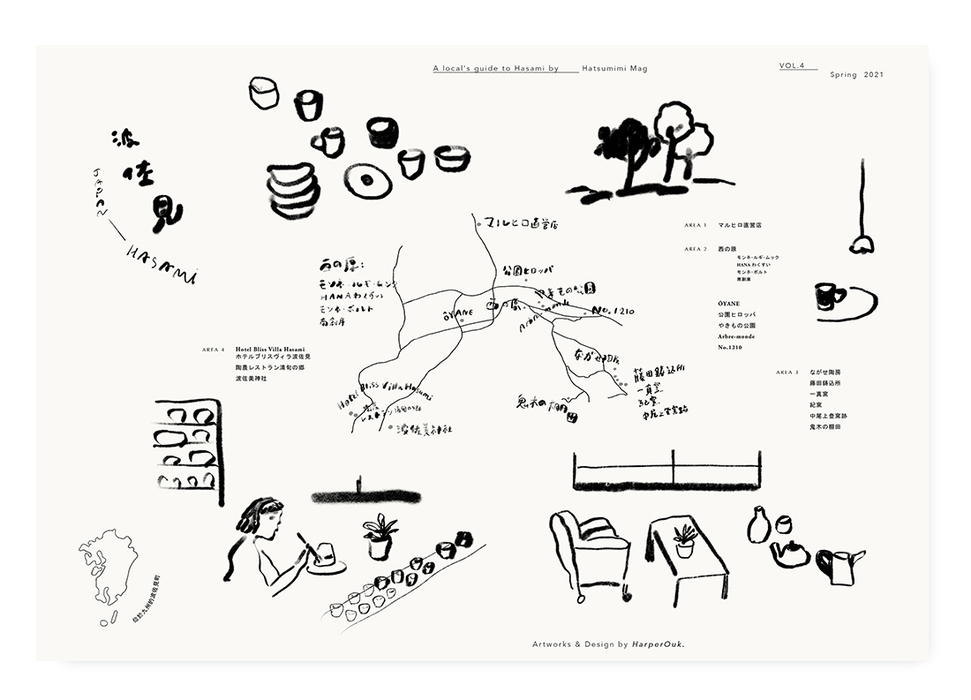 A local's guide to Hasami by Hatsumimi Mag
VOL.4
Spring 2021
波
佐
見
JAPAN
HASAMI
マルヒロ直営店
西の原:
モンネ・ルギ・ムック
HANAわくすい
モンネ・ポルト
公園ヒロッパ
ŌYANE
やきもの公園
Arbre-monde
No.1210
AREA 1 マルヒロ直営店
AREA 2 西の原
モンネ・ルギ・ムック
HANAわくすい
モンネ・ポルト
南創庫
ŌYANE
公園ヒロッパ
やきもの公園
Arbre-monde
No.1210
AREA 3 ながせ陶房
藤田鋳込所
一真窯
紀窯
中尾上登窯跡
鬼木の棚田
AREA 4 Hotel Bliss Villa Hasami
ホテルブリスヴィラ波佐見
陶農レストラン清旬の郷
波佐美神社
ながせ陶房
藤田鋳込所
一真窯
紀窯
中尾上登窯跡
鬼木の棚田
Hotel Bliss Villa Hasami
波佐美神社
位於九州的波佐見町
Artworks & Design by HarperOuk.